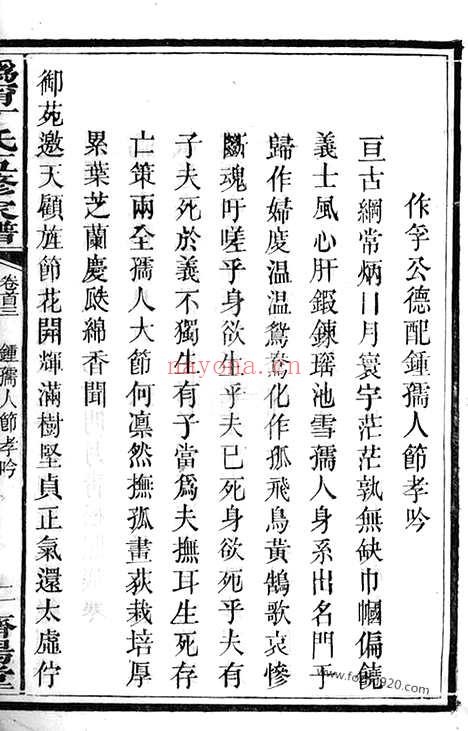 作孚公德配鍾孺人節孝吟
亘古綱常炳日月寰宇茫茫孰無缺巾幗偏饒
義士風心肝鍜鍊瑤池雪孺人身系出名門乎
歸作婦度温温鴛鴦化作孤飛鳥黃鵠歌哀慘
斷魂吁嗟乎身欲生乎夫已死身欲死乎夫有
子夫死於義不獨生有子當爲夫撫耳生死存
亡策兩全孺人大節何凛然撫孤畫荻栽培厚
累葉芝蘭慶瓞綿香聞
御苑邀天顧旌節花開輝滿樹堅貞正氣還太虛佇
氏五修家譜
卷首三
鍾孺人節孝吟
濟陽堂
nayona.cn
www.fo「」920.com